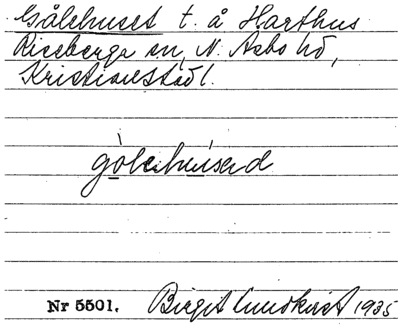 Gålehuset t. å Harthus
Riseberga sn, N. Åsbo hd,
Kristianstad l.
gölehuisəd
Nr 5501. Birgit Lundkvist 1935